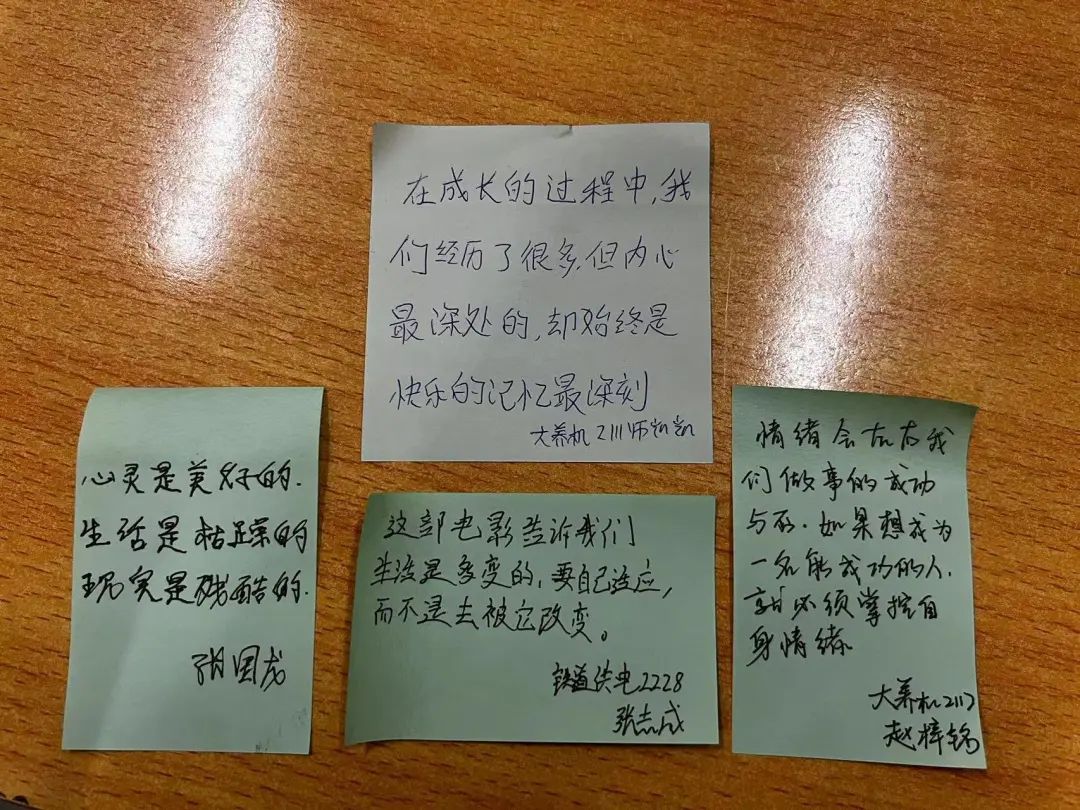 在成长的过程中,我
们经历了很多,但内心
最深处的,却始终是
快乐的记忆最深刻
大养机2111师
心灵是美好的.
生活是枯躁的
现实是残酷的.
张国成
这部电影告诉我们
生活是多变的,要自己适应,
而不是去被它改变。
铁道供电2228
张志成
情绪会左右我
们做事的成功
与否.如果想成为
一名能成功的人.
就必须掌控自
身情绪
大养机2117
赵梓铭